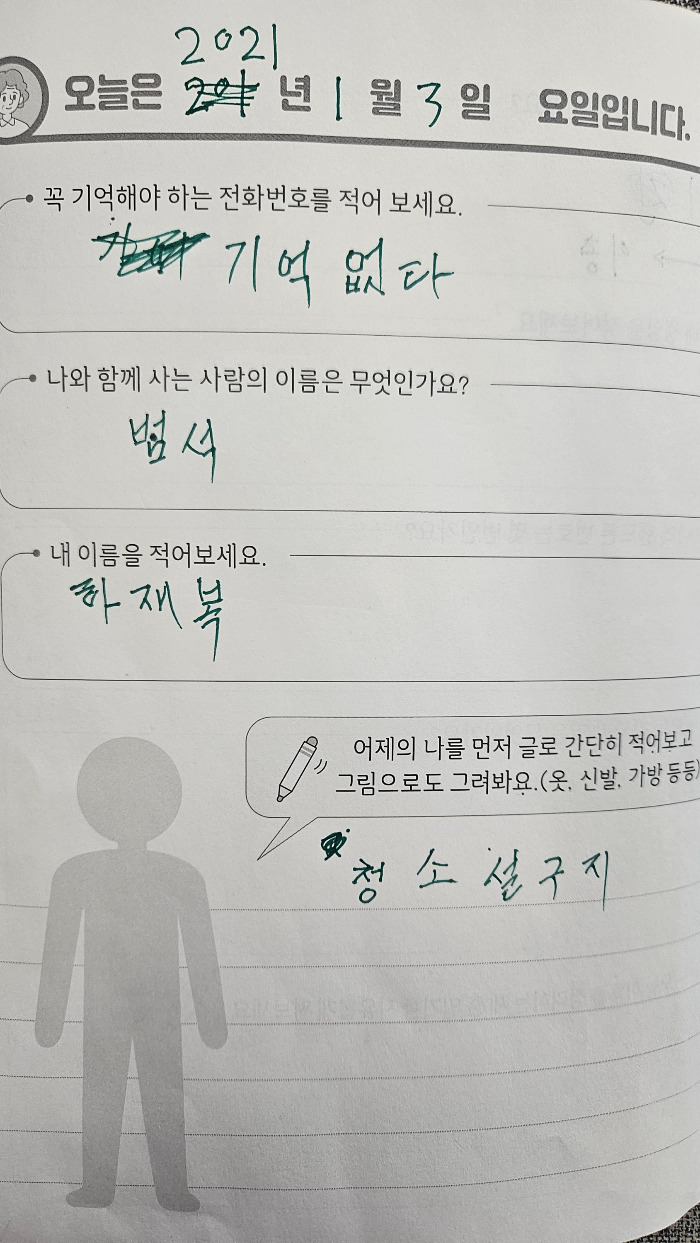 2021
오늘은 년 1 월 3 일 요일입니다.
꼭 기억해야 하는 전화번호를 적어 보세요.
기억 없다
나와 함께 사는 사람의 이름은 무엇인가요?
범석
내 이름을 적어보세요.
하재복
어제의 나를 먼저 글로 간단히 적어보고
그림으로도 그려봐요.(옷, 신발, 가방 등등)
청소 설구지